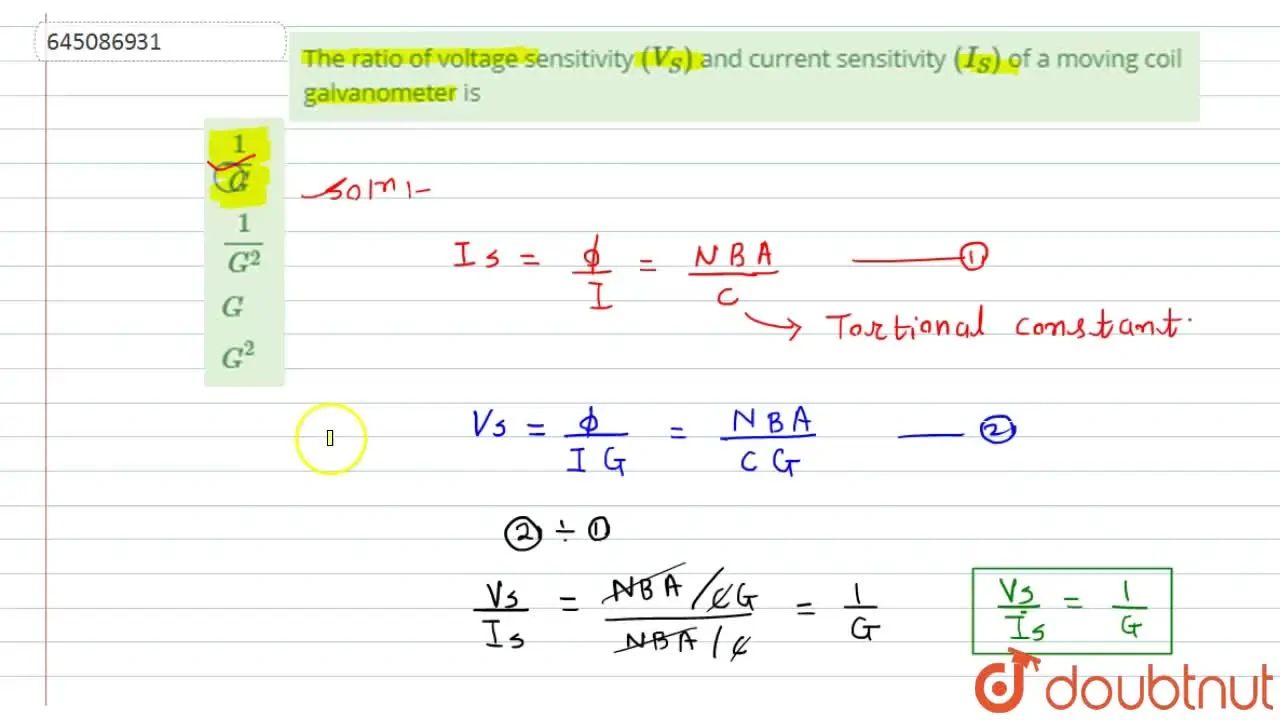 645086931
The ratio of voltage sensitivity (V_S) and current sensitivity (I_S) of a moving coil
galvanometer is
1/G
1/G²
G
G²
Soln:-
Is = ϕ/I = NBA/C —— ①
→ Tortional constant.
Vs = ϕ/IG = NBA/CG —— ②
② ÷ ①
Vs/Is = NBA/CG / NBA/C = 1/G
Vs/Is = 1/G
doubtnut